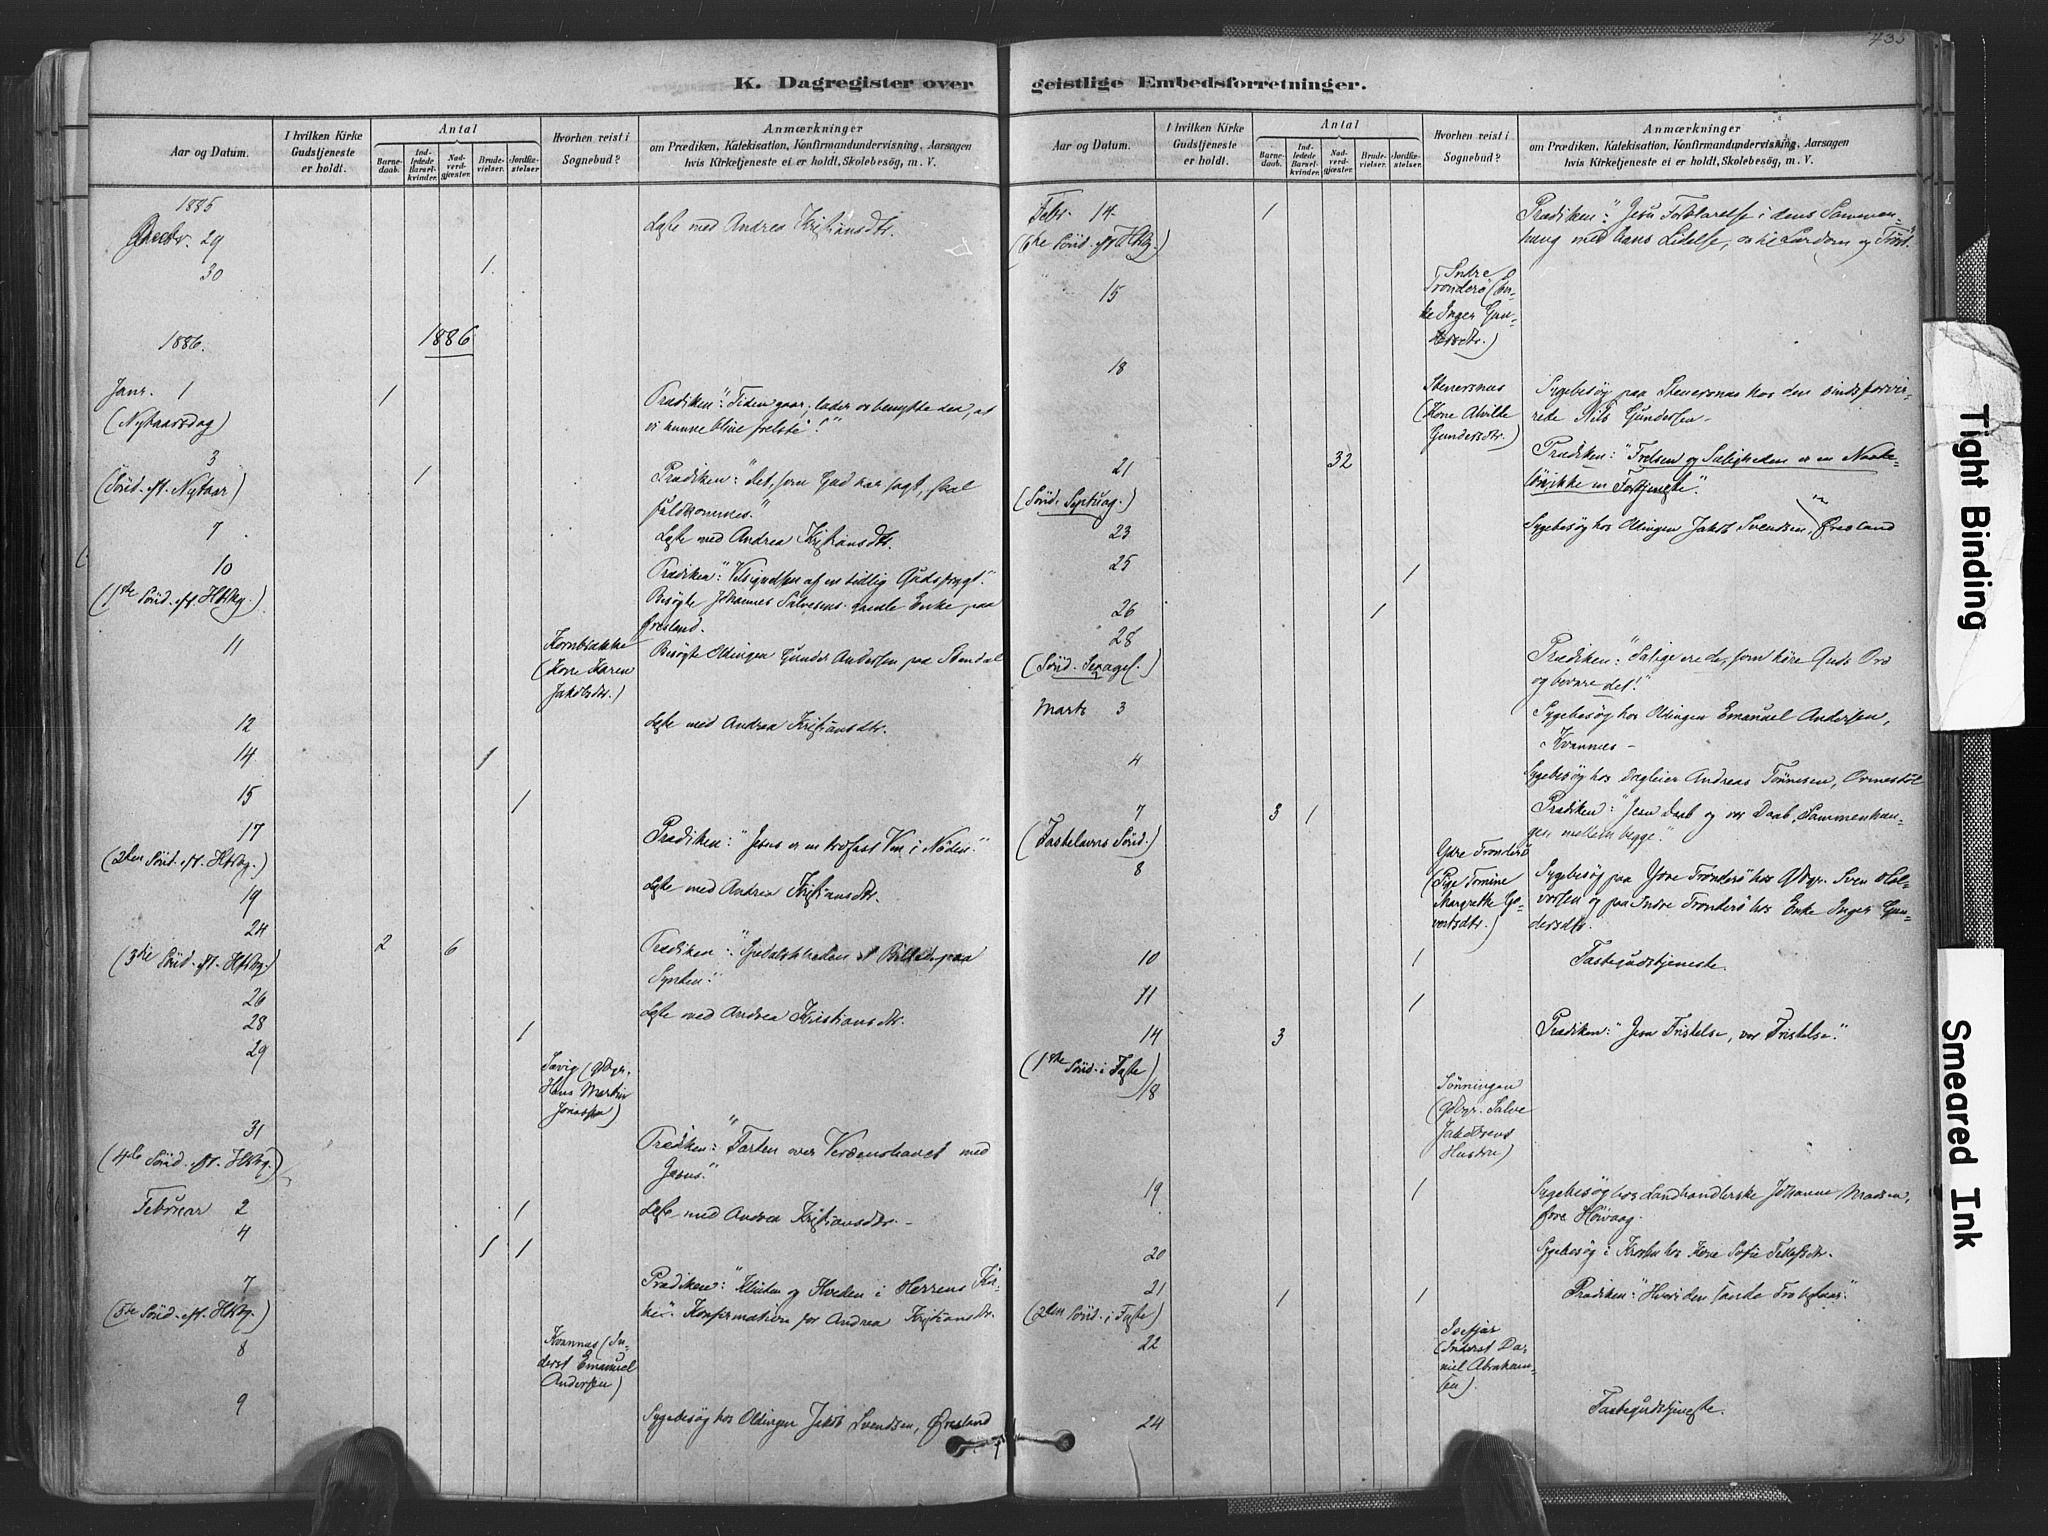 435
K. Dagregister over geistlige Embedsforretninger.
Aar og Datum.
I hvilken Kirke Gudstjeneste er holdt.
Antal
Barnedaab.
Indledede Barselkvinder.
Nadverdgjæster.
Brudevielser.
Jordfæstelser
Hvorhen reist i Sognebud?
Anmærkninger
om Prædiken, Katekisation, Konfirmandundervisning, Aarsagen
hvis Kirketjeneste ei er holdt, Skolebesög, m. V.
1885
Decbr. 29 Læste med Andrea Kristiansdtr.
30 1.
1886. 1886
Janr. 1 1 Prædiken: "Tiden gaar; lader os benytte den, at
(Nytaarsdag) vi kunne blive frelste!"
3 1 Prædiken: "Det, som Gud har sagt, skal
(Sönd. eft. Nytaar) fuldkommes."
7 Læste med Andrea Kristiansdtr.
10 Prædiken: "Velsignelsen af en tidlig Gudsfrygt."
(1ste Sönd. eft. Htrkg.) Besögte Johannes Salvesens gamle Enke paa
Øresland.
11 Kornbrække Besögte Oldingen Gunder Andersen paa Stendal
(Kone Karen
Jakobsdtr.)
12 Læste med Andrea Kristiansdtr.
14 1
15 1
17 Prædiken: "Jesus er en trofast Ven i Nöden."
(2den Sönd. eft. Htrkg.)
19 Læste med Andrea Kristiansdtr.
24 2 6 Prædiken: "Spedalskheden et Billede paa
(3die Sönd. eft. Htrkg.) Synden."
26 Læste med Andrea Kristiansdtr.
28 1
29 (Gbgr.
Hans Martin
Jonassen)
31 Prædiken: "Farten over Verdenshavet med
(4de Sönd. eft. Htrkg.) Jesus."
Februar 2 1 Læste med Andrea Kristiansdtr.
4 1 1
7 Prædiken: "Klinten og Hveden i Herrens Kir-
(5te Sönd. eft. Htrkg.) ke". Konfirmation for Andrea Kristiansdtr.
8 Kvannes (In-
derst Emanuel
Andersen)
9 Sygebesög hos Oldingen Jakob Svendsen, Øresland
Aar og Datum.
I hvilken Kirke Gudstjeneste er holdt.
Antal
Barnedaab.
Indledede Barselkvinder.
Nadverdgjæster.
Brudevielser.
Jordfæstelser
Hvorhen reist i Sognebud?
Anmærkninger
om Prædiken, Katekisation, Konfirmandundervisning, Aarsagen
hvis Kirketjeneste ei er holdt, Skolebesög, m. V.
Febr. 14 1 Prædiken: "Jesu Forklarelse i dens Sammen-
(6te Sönd. eft. Htrkg.) hæng med hans Lidelse, os til Lærdom og Tröst."
15 Indre
Tronderö (En-
ke Inger Gun-
dersdtr.)
18 Stenersnes Sygebesög paa Stenersnes hos den sindsforvir-
(Kone Alvilde rede Nils Gundersen
Gundersdtr.)
21 32 Prædiken: "Frelsen og Saligheden er en Naade-
(Sönd. Septuag.) lön, ikke en Fortjeneste."
23 Sygebesög hos Oldingen Jakob Svendsen, Øresland
25 1
26 1
28 Prædiken: "Salige ere de, som höre Guds Ord
(Sönd. Sexages.) og bevare det!"
Marts 3 Sygebesög hos Oldingen Emanuel Andersen,
Kvannes
4 Sygebesög hos Andreas Tönnesen, Ormestöl
7 3 1 Prædiken: "Jesu Daab og vor Daab, Sammenhæn-
(Fastelavns Sönd.) gen mellem begge."
8 Ydre Tronderö Sygebesög paa Ydre Tronderö hos Gbgr. Sven Hal-
(Pige Tomine vorsen og paa Indre Tronderö hos Enke Inger Gun-
Margrethe dersdtr.
10 1 Fastegudstjeneste.
11 1
14 3 Prædiken: "Jesu Fristelse, vor Fristelse."
(1ste Sönd. i Faste)
18 Tönningen
(Gbgr. Salve
Jakobsens
Hustru)
19 1 Sygebesög hos Landhandlerske Johanne Madsen,
Hövaag.
20 Sygebesög i hos Kone Sofie Tellefsdtr.
21 1 1 Prædiken: "Hvori den sande Tro bestaar."
(2den Sönd. i Faste)
22 Isefjær
(Inderst Da-
niel Abraham-
sen).
24 Fastegudstjeneste.
Tight Binding
Smeared Ink